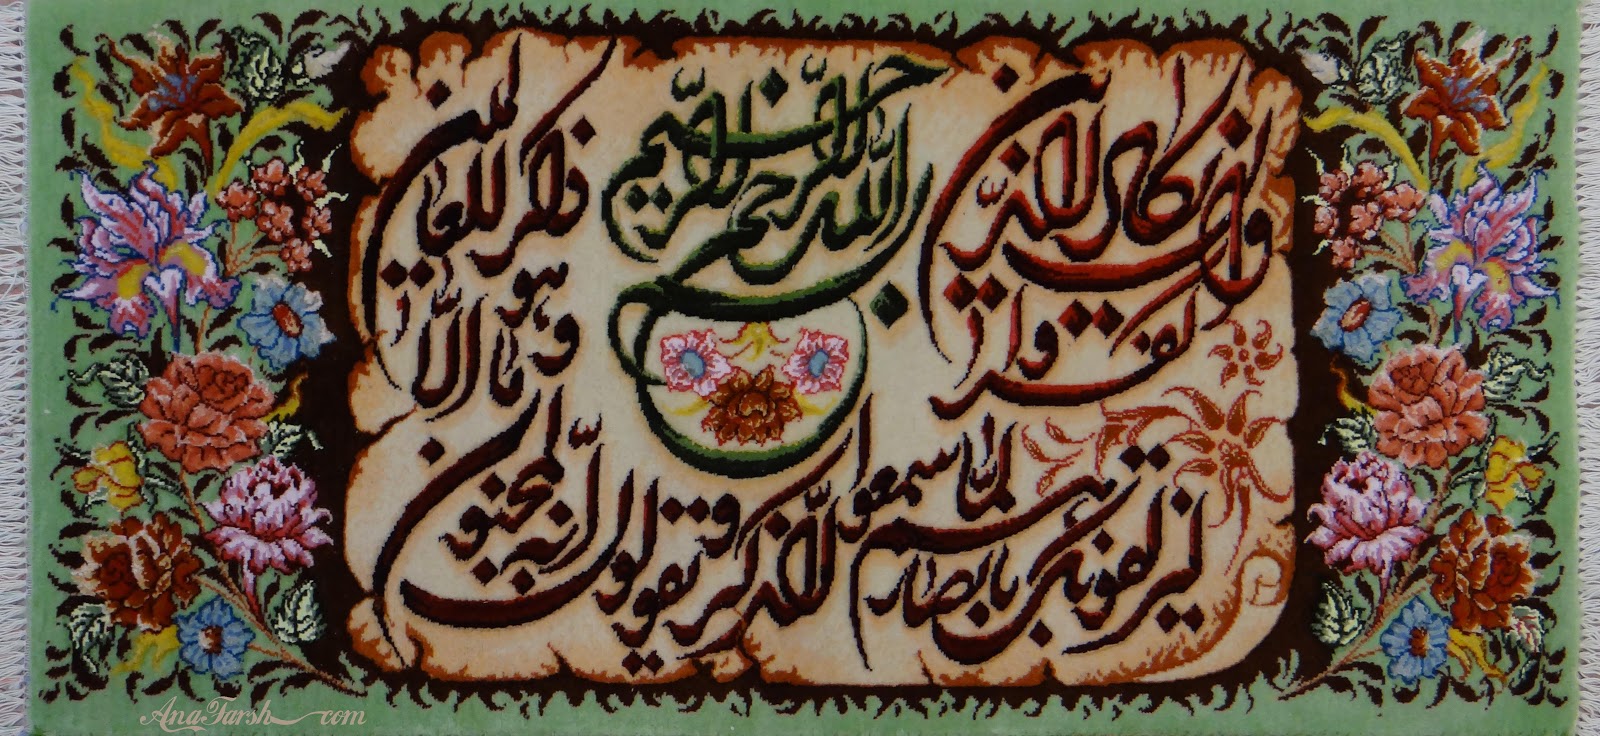 بسم الله الرحمن الرحیم
وان یکاد الذین
کفروا
لیزلقونک بابصارهم لما سمعوا الذکر و یقولون انه لمجنون
وما هو الا
ذکر للعالمین
AnaTarsh.com